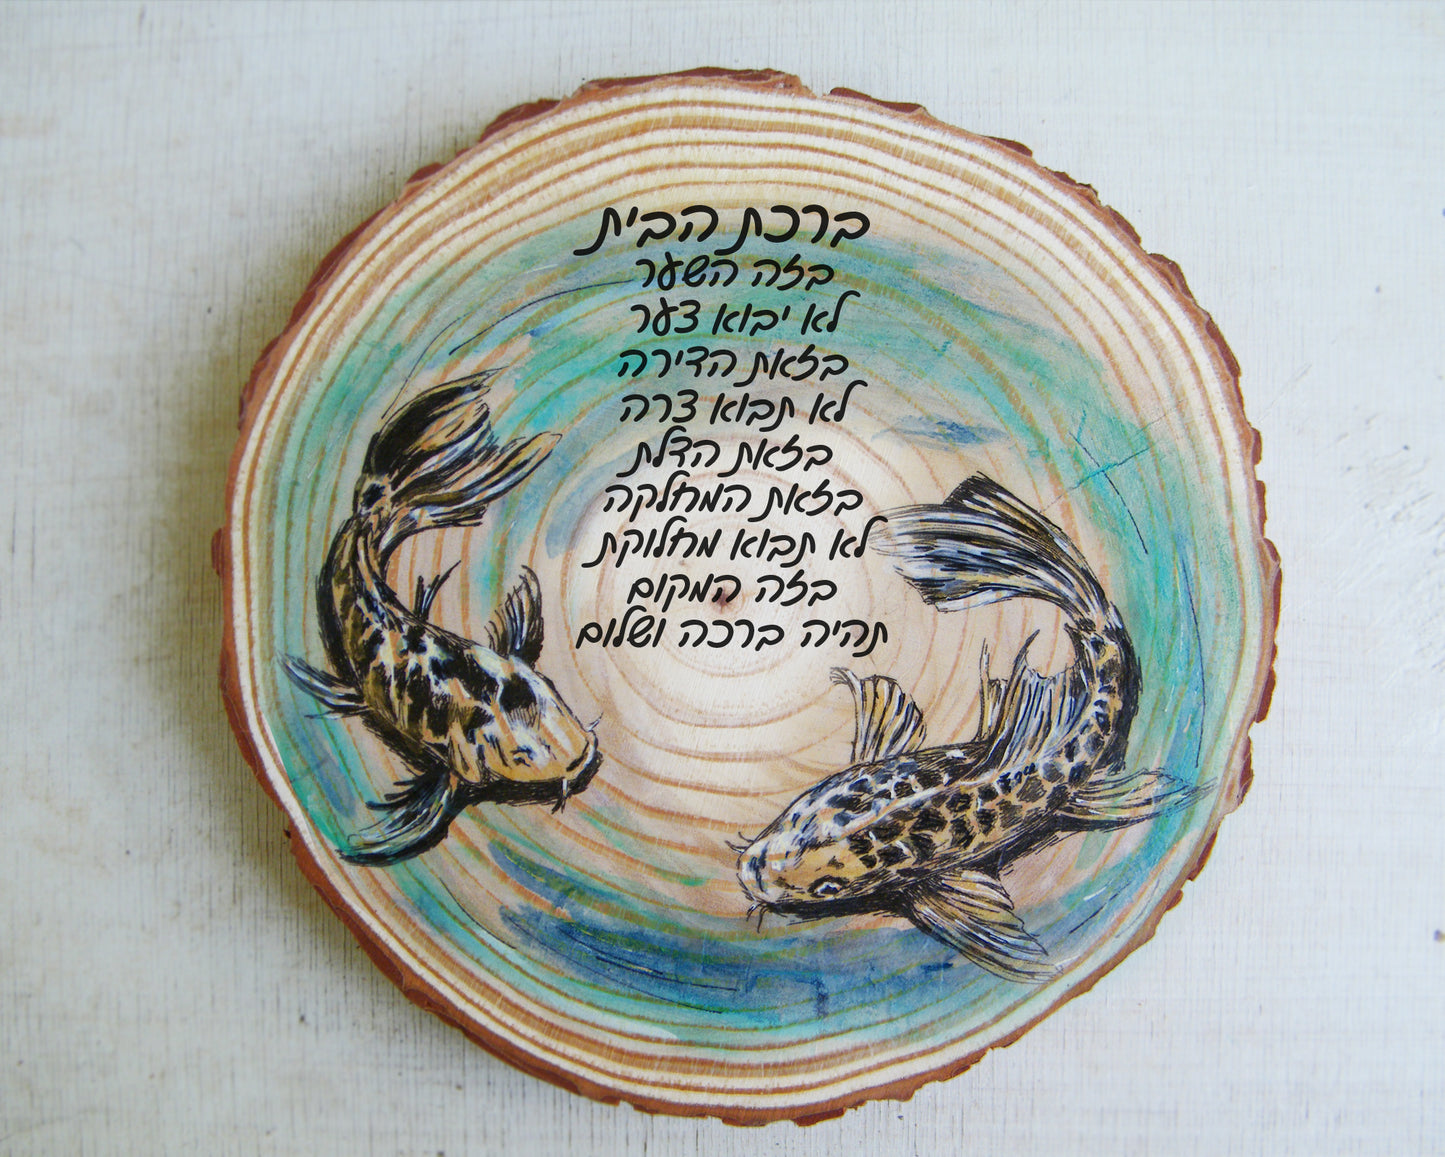 ברכת הבית
בזה השער
לא יבוא צער
בזאת הדירה
לא תבוא צרה
בזאת הדלת
בזאת המחלקה
לא תבוא מחלוקת
בזה המקום
תהיה ברכה ושלום